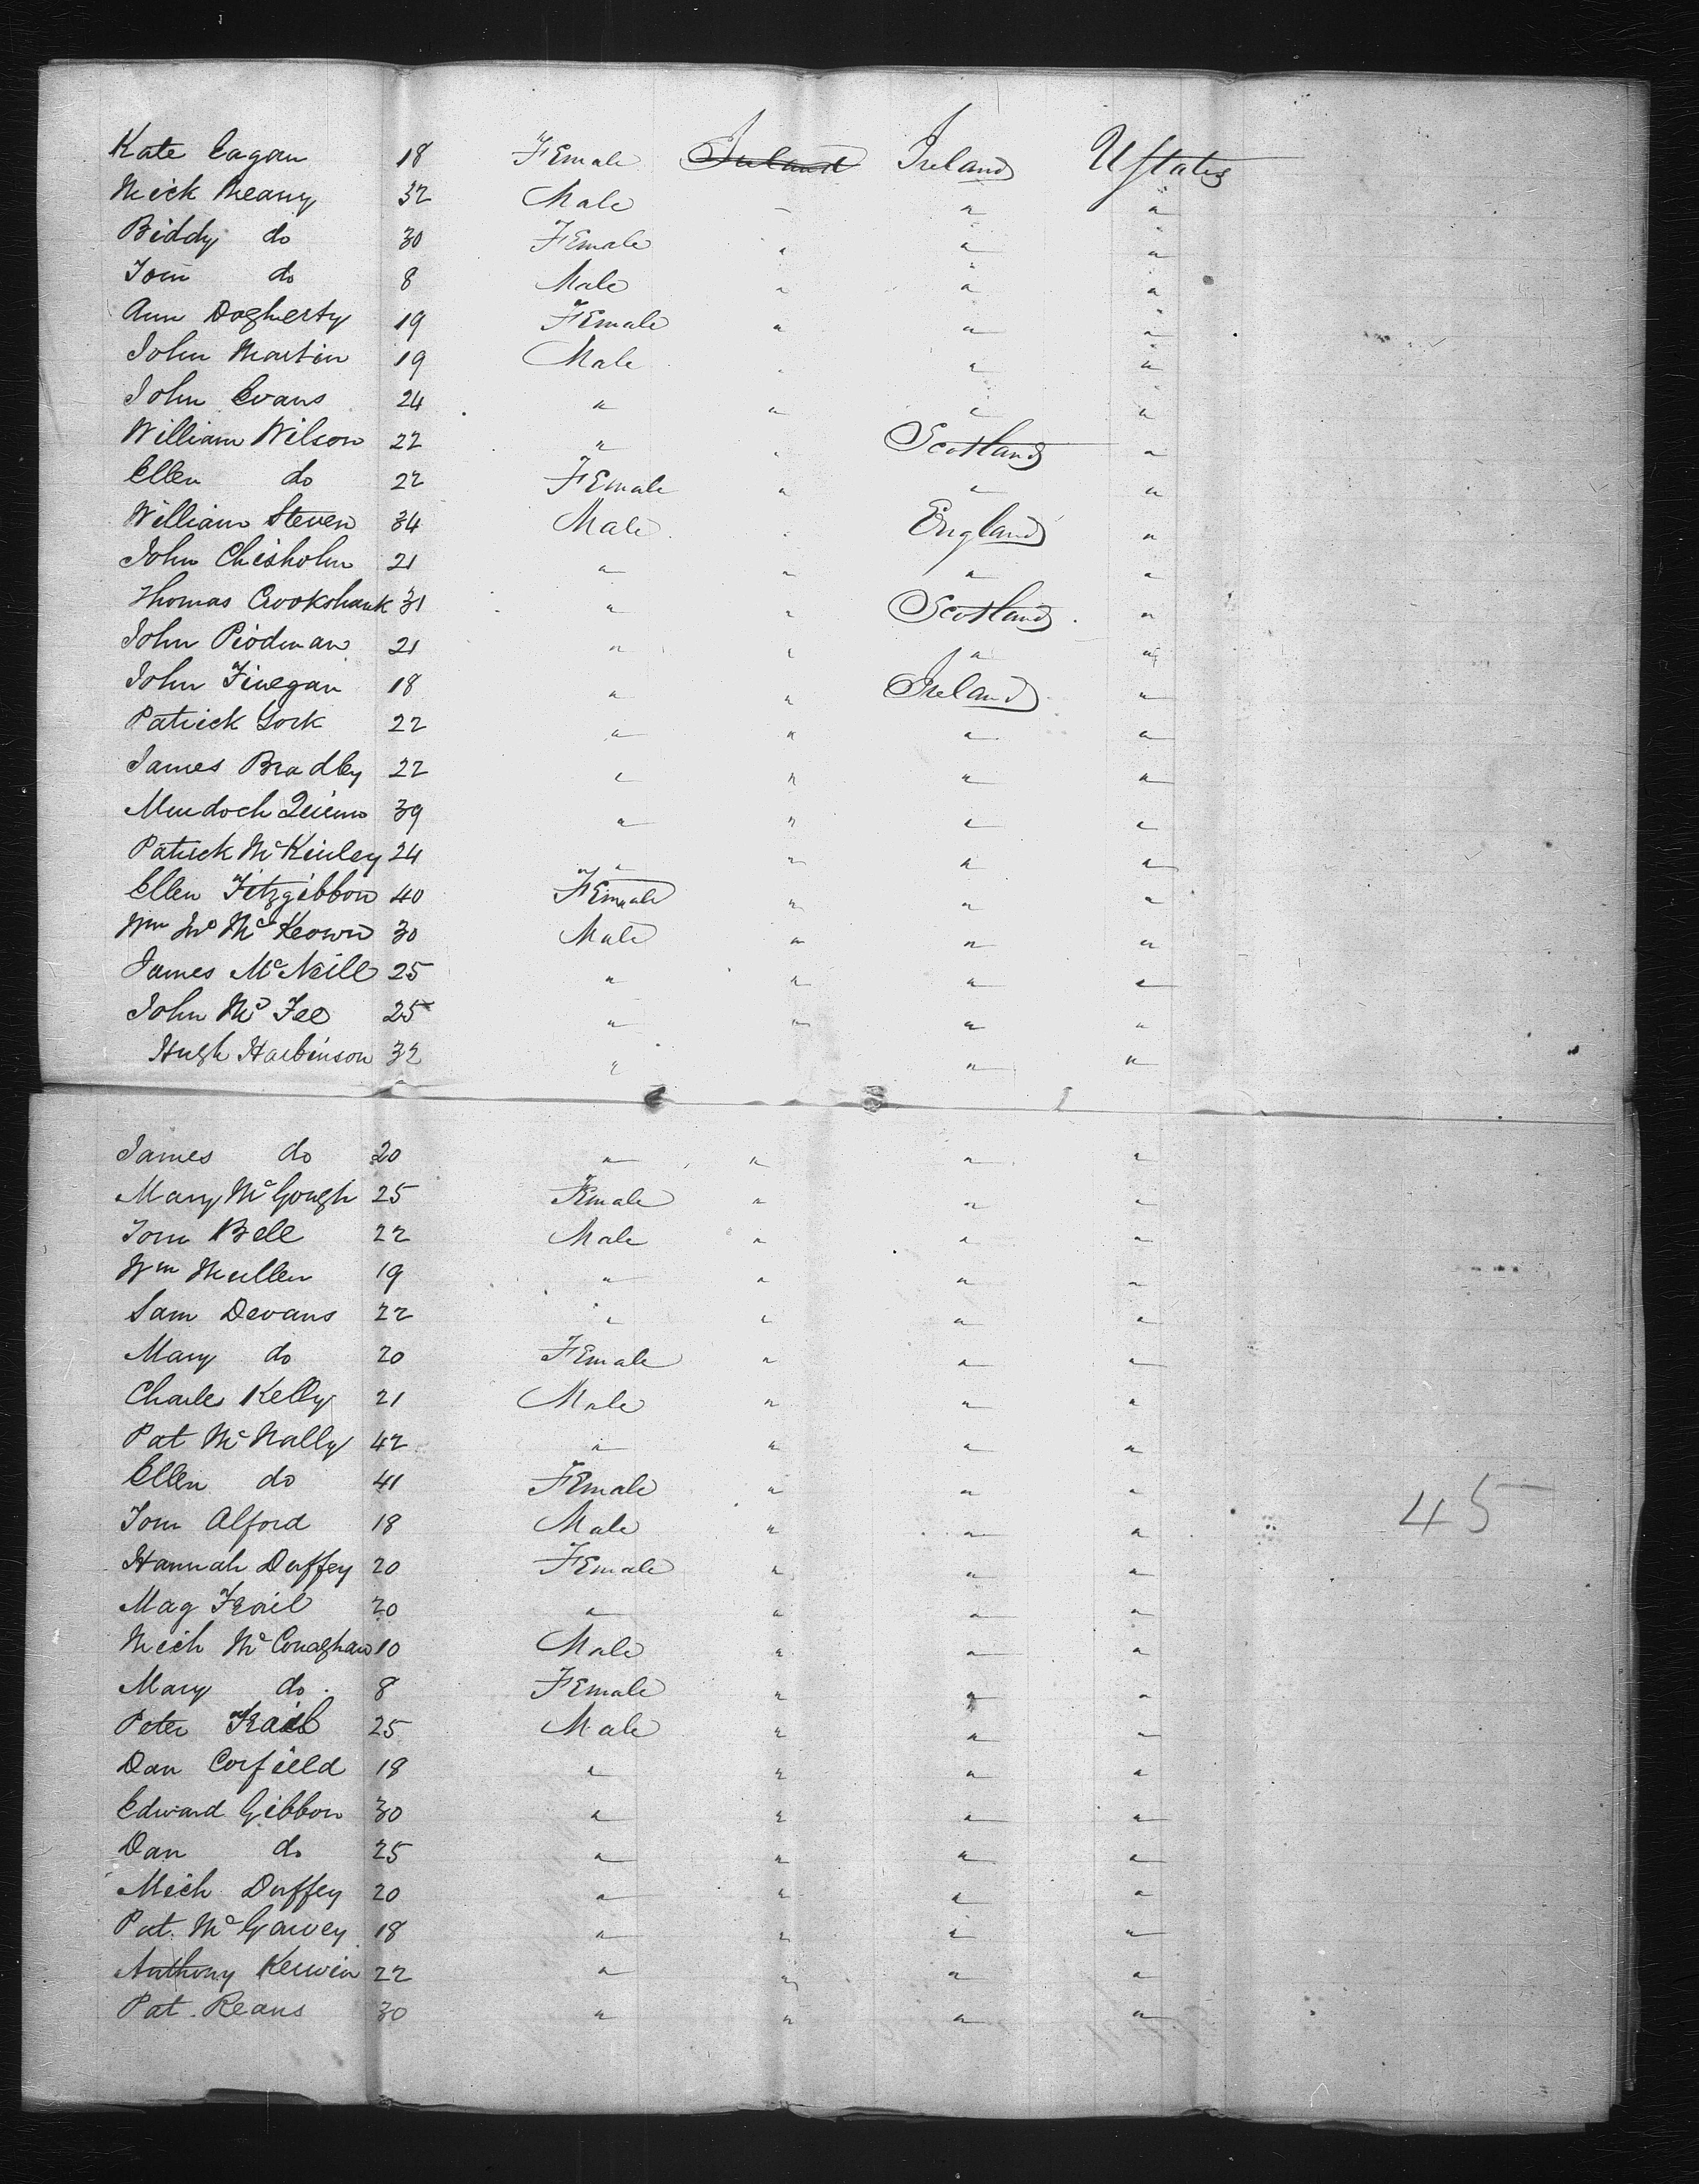 Kate Eagan 18 Female Ireland Ireland U States
Mick Meany 32 Male - " "
Biddy do 30 Female " " "
Tom do 8 Male " " "
Ann Dogherty 19 Female " " "
John Martin 19 Male " " "
John Evans 24 " " " "
William Wilson 22 " " Scotland "
Ellen do 22 Female " " "
William Steven 34 Male " England "
John Chisholm 21 " " " "
Thomas Crookshank 31 " " Scotland "
John Piodman 21 " " " "
John Finegan 18 " " Ireland "
Patrick York 22 " " " "
James Bradley 22 " " " "
Murdoch 39 " " " "
Patrick McKinley 24 " " " "
Ellen Fitzgibbon 40 Female " " "
Wm McKeown 30 Male " " "
James McNeill 25 " " " "
John McFee 25 " " " "
Hugh Harbinson 32 " " "
James do 20 " " " "
Mary McGough 25 Female " " "
Tom Bell 22 Male " " "
Wm Mullen 19 " " " "
Sam Devans 22 " " " "
Mary do 20 Female " " "
Charles Kelly 21 Male " " "
Pat McNally 42 " " " "
Ellen do 41 Female " " "
Tom Alford 18 Male " " "
45
Hannah Duffey 20 Female " " "
Mag Frail 20 " " " "
Mich McConaghan 10 Male " " "
Mary do. 8 Female " " "
Peter Frail 25 Male " " "
Dan Corfield 18 " " " "
Edward Gibbon 30 " " " "
Dan do 25 " " " "
Mich Duffey 20 " " " "
Pat. McGarvey 18 " " " "
Anthony Kerwin 22 " " " "
Pat. Reans 30 " " " "